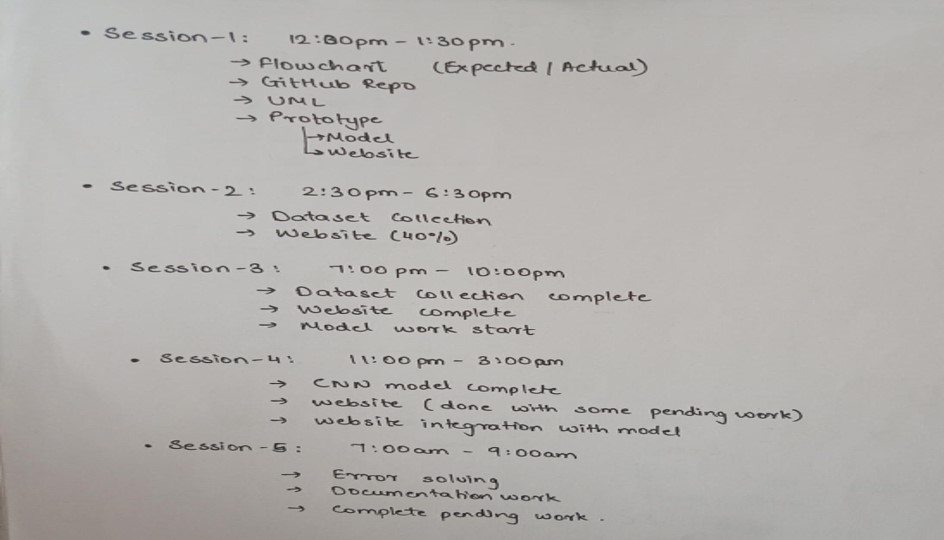 • Session-1: 12:00pm - 1:30pm.
→ Flowchart (Expected / Actual)
→ GitHub Repo
→ UML
→ Prototype
→ Model
→ Website
• Session-2: 2:30pm - 6:30pm
→ Dataset Collection
→ Website (40%)
• Session-3: 7:00pm - 10:00pm
→ Dataset Collection complete
→ Website complete
→ Model work start
• Session-4: 11:00pm - 3:00am
→ CNN model complete
→ website (done with some pending work)
→ website integration with model
• Session-5: 7:00am - 9:00am
→ Error solving
→ Documentation work
→ Complete pending work.